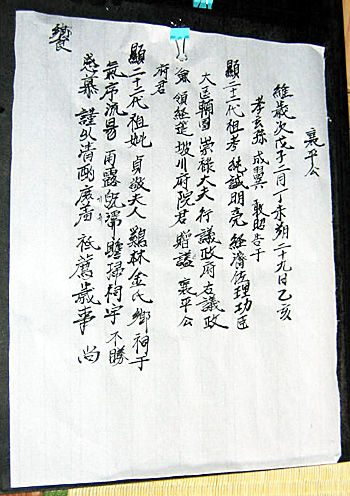 襄平公
維歲次戊子二月丁未朔二十九日乙亥
孝玄孫 成翼 敢昭告于
顯二十二代祖考 純誠明亮 經濟佐理功臣
大匡輔國崇祿大夫 行議政府右議政
兼 領經筵 坡川府院君 贈諡 襄平公
府君
顯二十二代祖妣 貞敬夫人 鷄林金氏 鄉祠于
氣序流易 雨露旣濡 瞻掃祠宇 不勝
感慕 謹以清酌庶羞 祗薦歲事 尚
饗